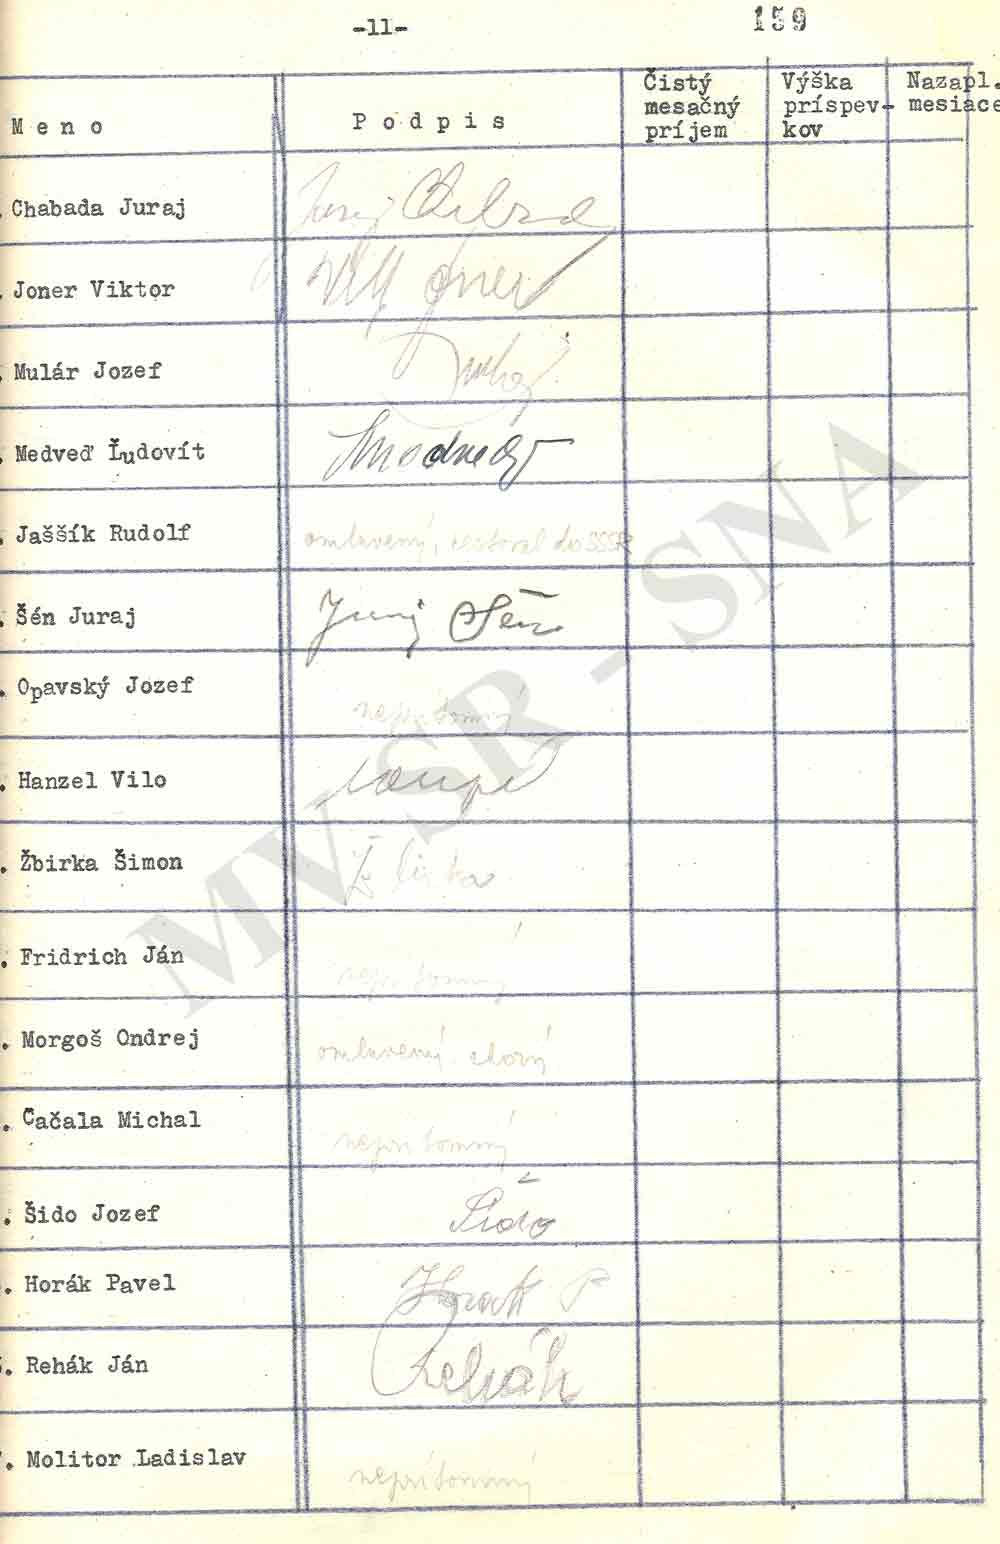 -11-
159
Meno
Podpis
Čistý
mesačný
príjem
Výška
príspev-
kov
Nazapl.
mesiace
. Chabada Juraj
Juraj
. Joner Viktor
Joner
. Mulár Jozef
. Medveď Ľudovít
. Jaššík Rudolf omluvený, cestoval do SSSR
. Šén Juraj Juraj Šén
. Opavský Jozef neprítomný
. Hanzel Vilo
. Žbirka Šimon Žbirka
. Fridrich Ján neprítomný
. Morgoš Ondrej omluvený - chorý
. Čačala Michal neprítomný
. Šido Jozef Šido
. Horák Pavel Horák P
. Rehák Ján Rehák
. Molitor Ladislav neprítomný
MV SR - SNA